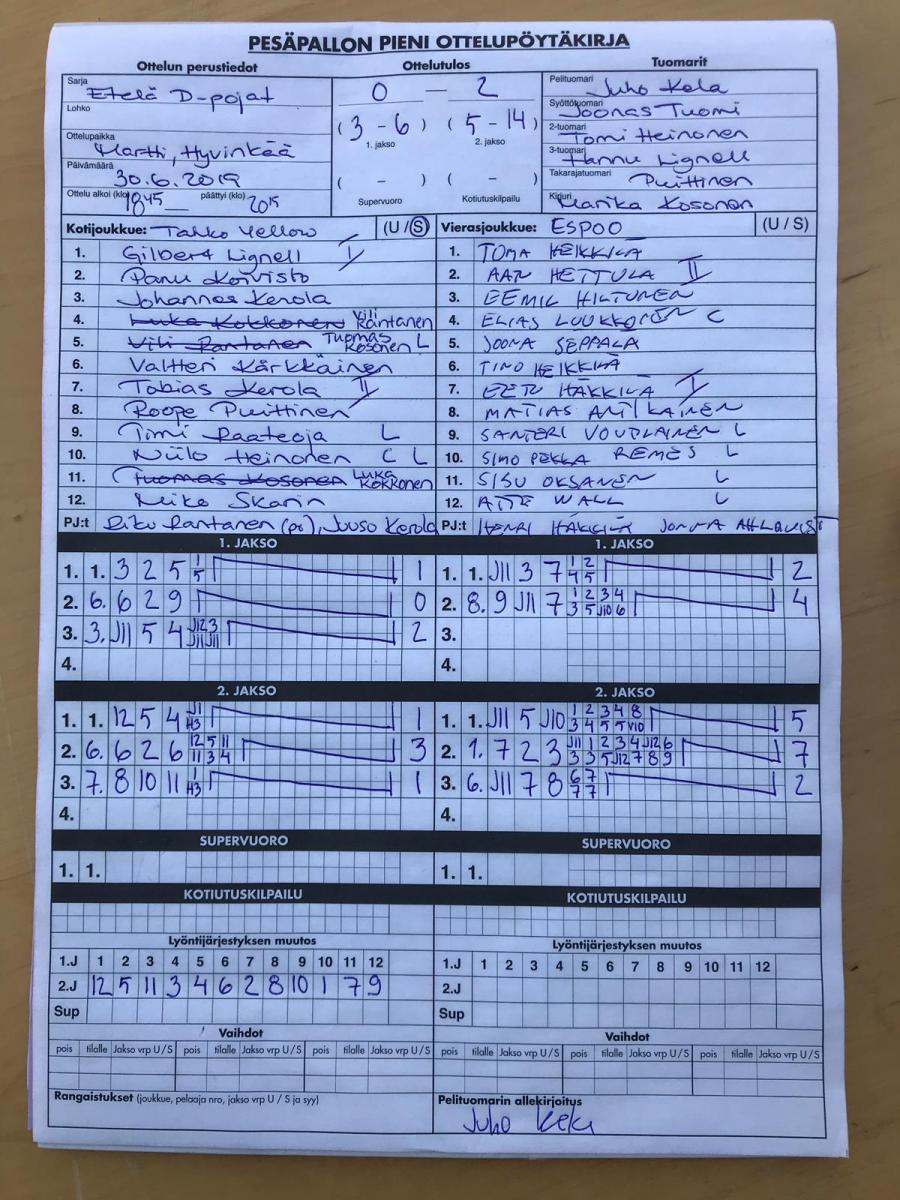 PESÄPALLON PIENI OTTELUPÖYTÄKIRJA
Ottelun perustiedot Ottelutulos Tuomarit
Sarja Etelä D-pojat
Lohko
Ottelupaikka Martti, Hyvinkää
Päivämäärä 30.6.2019
Ottelu alkoi (klo) 18 45 päättyi (klo) 20 15
0 — 2
(3 - 6) (5 - 14)
1. jakso 2. jakso
( - ) ( - )
Supervuoro Kotiutuskilpailu
Pelituomari Juho Kela
Syöttötuomari Joonas Tuomi
2-tuomari Tomi Heinonen
3-tuomari Hannu Lignell
Takarajatuomari Puittinen
Kirjuri Marika Kosonen
Kotijoukkue: Tahko Yellow (U / S)
1. Gilbert Lignell I
2. Panu Koivisto
3. Johannes Kerola
4. Luka Kokkonen Vili Rantanen
5. Vili Rantanen Tuomas Kosonen L
6. Valtteri Kärkkäinen
7. Tobias Kerola II
8. Roope Puittinen
9. Timi Raateoja L
10. Niilo Heinonen C L
11. Tuomas Kosonen Luka Kokkonen
12. Miko Skarin
PJ:t Riku Rantanen (pj), Juuso Kerola
Vierasjoukkue: ESPOO (U / S)
1. TOMA HEIKKILÄ
2. AAR HETTULA II
3. EEMIL HILTUNEN
4. ELIAS LUUKKONEN C
5. JOONA SEPPALA
6. TINO HEIKKILÄ
7. EETU HÄKKILÄ I
8. MATIAS ANTIKAINEN
9. SANTERI VOUTILAINEN L
10. SIMO PEKKA REMES L
11. SISU OKSANEN L
12. ATTE WALL L
PJ:t HENRI HÄKKILÄ JONNA AHLQVIST
1. JAKSO
1. 1. 3 2 5 1 5 1
2. 6. 6 2 9 0
3. 3. J11 5 4 J12 3 J11 J11 2
4.
1. JAKSO
1. 1. J11 3 7 1 2 4 5 2
2. 8. 9 J11 7 1 2 3 4 3 5 J10 6 4
3.
4.
2. JAKSO
1. 1. 12 5 4 J1 H3 1
2. 6. 6 2 6 12 5 11 11 3 4 3
3. 7. 8 10 11 1 H3 1
4.
2. JAKSO
1. 1. J11 5 J10 1 2 3 4 8 3 4 5 5 V10 5
2. 1. 7 2 3 J11 1 2 3 4 J12 6 3 3 5 J12 7 8 9 7
3. 6. J11 7 8 6 7 7 7 2
4.
SUPERVUORO SUPERVUORO
1. 1. 1. 1.
KOTIUTUSKILPAILU KOTIUTUSKILPAILU
Lyöntijärjestyksen muutos
1.J 1 2 3 4 5 6 7 8 9 10 11 12
2.J 12 5 11 3 4 6 2 8 10 1 7 9
Sup
Vaihdot
pois tilalle Jakso vrp U / S pois tilalle Jakso vrp U / S pois tilalle Jakso vrp U / S
Rangaistukset (joukkue, pelaaja nro, jakso vrp U / S ja syy)
Lyöntijärjestyksen muutos
1.J 1 2 3 4 5 6 7 8 9 10 11 12
2.J
Sup
Vaihdot
pois tilalle Jakso vrp U / S pois tilalle Jakso vrp U / S pois tilalle Jakso vrp U / S
Pelituomarin allekirjoitus
Juho Kela